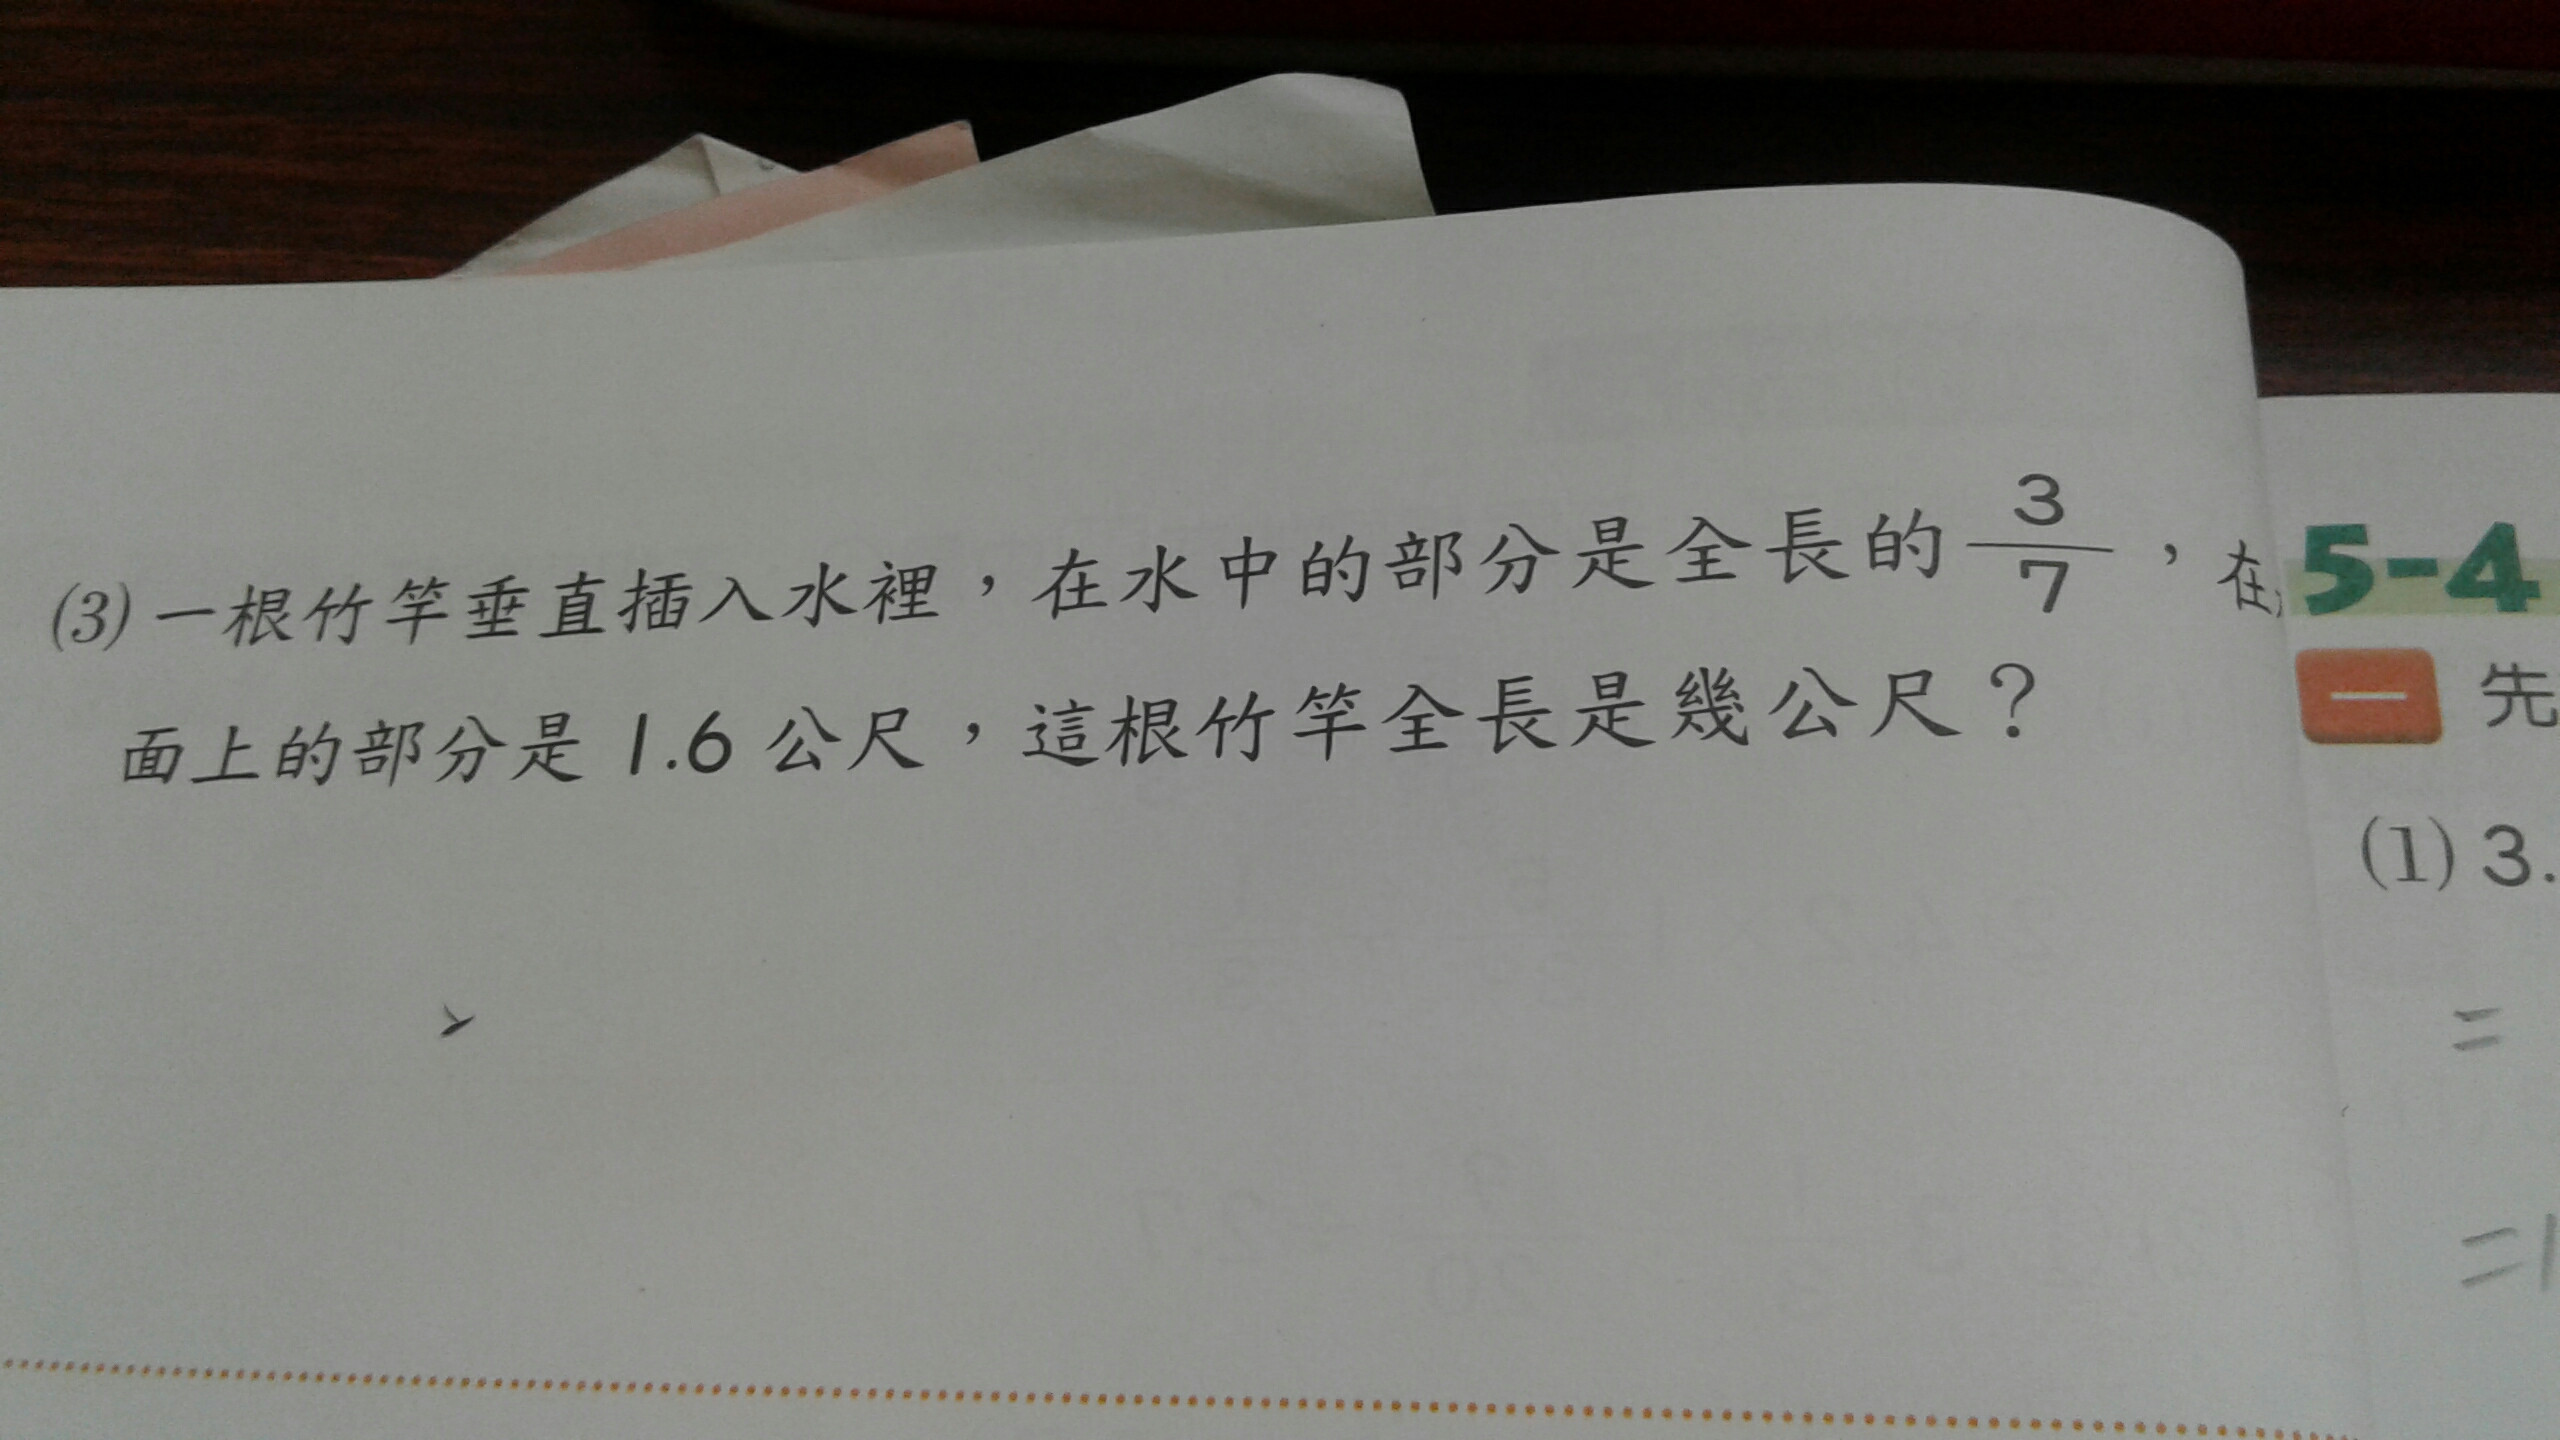 (3) 一根竹竿垂直插入水裡,在水中的部分是全長的 3/7 ,在
面上的部分是 1.6 公尺,這根竹竿全長是幾公尺?
5-4
一 先
(1) 3.
=
=1